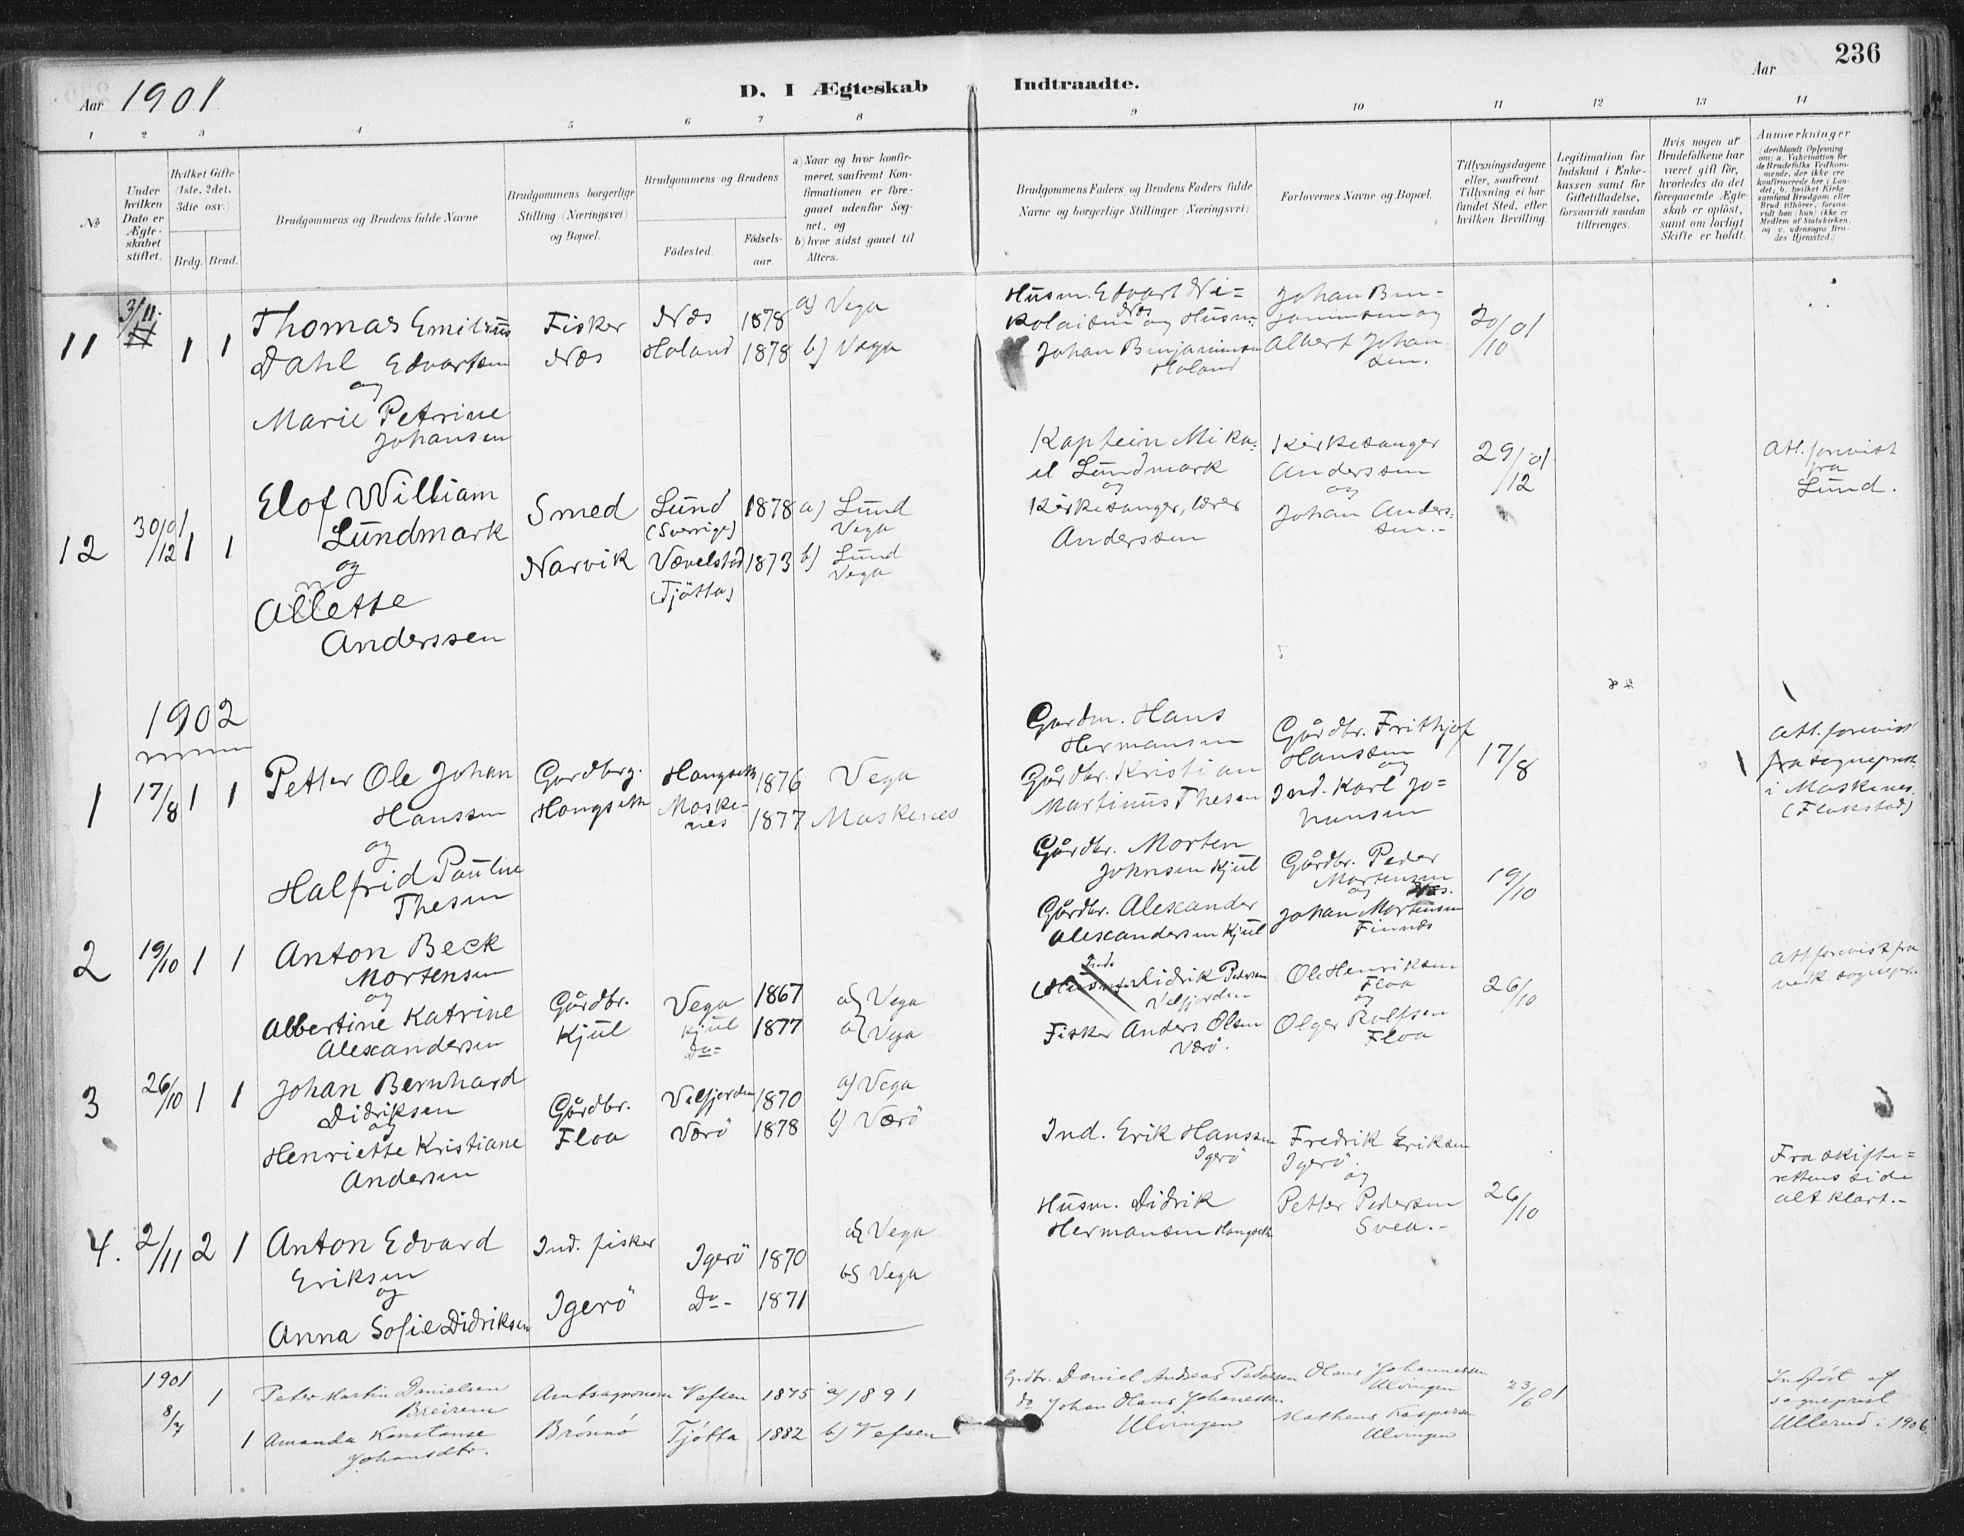 236
Aar 1901
D. I Ægteskab Indtraadte.
Aar
1 2 3 4 5 6 7 8 9 10 11 12 13 14
No
Under hvilken Dato er Ægteskabet stiftet.
Hvilket Gifte (1ste, 2det, 3die osv.)
Brdg. Brud.
Brudgommens og Brudens fulde Navne
Brudgommens borgerlige Stilling (Næringsvei) og Bopæl.
Brudgommens og Brudens
Födested.
Födselsaar.
a) Naar og hvor konfirmeret, saafremt Konfirmationen er foregaaet udenfor Sognet, og
b) hvor sidst gaaet til Alters.
Brudgommens Faders og Brudens Faders fulde Navne og borgerlige Stillinger (Næringsvei)
Forlovernes Navne og Bopæl.
Tillysningsdagene eller, saafremt Tillysning ei har fundet Sted, efter hvilken Bevilling.
Legitimation for Indskud i Enkekassen samt for Giftetilladelse, forsaavidt saadan tiltrænges.
Hvis nogen af Brudefolkene har været gift før, hvorledes da det foregaaende Ægteskab er opløst, samt om lovligt Skifte er holdt.
Anmærkninger
(deriblandt Oplysning om: a. Vakcination for de Brudefolks Vedkommende, der ikke ere konfirmerede her i Landet; b. hvilket Kirkesamfund Brudgom eller Brud tilhører, forsaavidt han (hun) ikke er Medlem af Statskirken, og c. udensogns Brudes Hjemsted.)
11 3/11. 1 1
Thomas Emilius
Dahl Edvartsen
og
Marie Petrine
Johansen
Fisker
Næs
Næs 1878
Holand 1878
a) Vega
b) Vega
Husm. Edvart Ni=
kolaisen Næs og Husm.
Johan Benjaminsen
Holand
Johan Ben-
jaminsen og
Albert Johan-
sen.
20/10 01
12 30/12 01 1 1
Elof William
Lundmark
og
Allette
Anderssen
Smed
Narvik
Lund
(Sverige) 1878
Vævelstad
(Tjötta) 1873
a) Lund
Vega
b) Lund
Vega
Kaptein Mika-
el Lundmark
og
Kirkesanger, lærer
Anderssen
Kirkesanger
Anderssen
og
Johan Anders-
sen.-
29/12 01
Att. forevist
fra
Lund.
1902
1 17/8 1 1
Petter Ole Johan
Hanssen
og
Halfrid Pauline
Thesen
Gardbrg.
Hongseth
Hongseth 1876
Moske-
nes 1877
Vega
Moskenes
Gardm. Hans
Hermansen
Gårdbr. Kristian
Martinus Thesen
Gårdbr. Frithjof
Hanssen
og
Ind. Karl Jo=
hansen
17/8
Att. forevist
fra sogneprest
i Moskenes.
(Flakstad)
2 19/10 1 1
Anton Beck
Mortensen
og
Albertine Katrine
Alexandersen
Gårdbr.
Kjul
Vega 1867
Kjul 1877
Do=
a) Vega
a) Vega
Gårdbr. Morten
Johnsen Kjul
Gårdbr. Alexander
Alexandersen Kjul
Gårdbr. Peder
Mortensen
og Næs.
Johan Mortensen
Finnæs
19/10
3 26/10 1 1
Johan Bernhard
Didriksen
og
Henriette Kristiane
Andersen
Gårdbr.
Floa
Velfjorden 1870
Værö 1878
a) Vega
b) Værö
Ind. Didrik Pedersen
Velfjorden
Fisker Anders Olsen
Værö.
Ole Henriksen
Floa
og
Olger Rolfsen
Floa
26/10
Att. forevist fra
vedk. sognepr.
4. 2/11 2 1
Anton Edvard
Eriksen
og
Anna Sofie Didriksen
Ind. fisker
Igerö
Igerö 1870
Do- 1871
a) Vega
b) Vega
Ind. Erik Hanssen
Igerö
Husm. Didrik
Hermansen Hongseth
Fredrik Eriksen
Igerö
og
Petter Pedersen
Svea.-
26/10
Fra skifte=
rettens side
alt klart.-
1901
8/7 1 1
Peter Martin Danielsen
Breirem
Amanda Konstanse
Johansdtr.
Amtsagronom
Brönnö
Vefsen 1875
Tjötta 1882
a) 1891
b) Vefsen
Grdbr. Daniel Andreas Pedersen
do Johan Olaus Johannesen
Ulvingen
Olaus Johannessen
Ulvingen
Matheus Kaspersen
Ulvingen
23/6 01
Indført af
sogneprest
Ullerud i 1906.